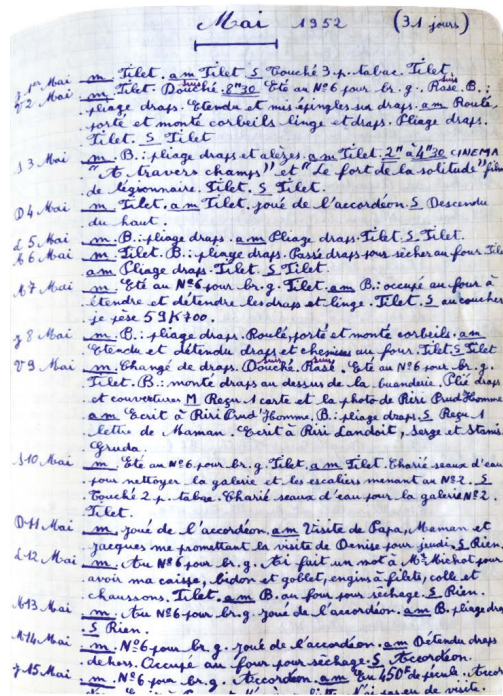 Mai 1952 (31 jours)
J. 1er Mai m Filet. am Filet S Touché 3 p. tabac. Filet.
V 2 Mai m Filet. Douché. 8H30 Été au Nº6 pour br. g. Rasé. B.:
pliage draps. Etendu et mis épingles un draps. am Roulé,
porté et monté corbeils linge et draps. Pliage draps.
Filet. S Filet
S 3 Mai m B.: pliage draps et alèzes. am Filet. 2H à 4H30 CINEMA
"A travers champs" et "Le fort de la solitude" film
de légionnaire. Filet. S Filet.
D 4 Mai m Filet. am Filet, joué de l'accordéon. S Descendu
du haut.
L 5 Mai m B.: pliage draps. am Pliage draps. Filet. S Filet.
M 6 Mai m Filet. B.: pliage draps. Passé draps pour sécher au four. File
am Pliage draps. Filet. S Filet.
M 7 Mai m Été au Nº6 pour br. g. Filet. am B.: occupé au four à
étendre et détendre les draps et linge. Filet. S au coucher
je pèse 59K700.
J 8 Mai m B.: pliage draps. Roulé, porté et monté corbeils. am
Etendu et détendu draps et chemises au four. Filet. S Filet
V 9 Mai m Changé de draps. Douché. Rasé. Été au Nº6 pour br. g.
Filet. B.: monté draps au dessus de la buanderie. Plié draps
et couvertures M Reçu 1 carte et la photo de Riri Prud'Homme
am Ecrit à Riri Prud'Homme. B.: pliage draps. S Reçu 1
lettre de Maman. Ecrit à Riri Landoit, Serge et Stanis
Gruda.
S 10 Mai m Été au Nº6 pour br. g. Filet. am Filet. Charié seaux d'eau
pour nettoyer la galerie et les escaliers menant au Nº2. S
Touché 2 p. tabac. Charié seaux d'eau pour la galerie Nº2.
Filet.
D 11 Mai m joué de l'accordéon. am Visite de Papa, Maman et
Jacques me promettant la visite de Denise pour jeudi. S Rien.
L 12 Mai m Au Nº6 pour br. g. Ai fait un mot à Mr Michot pour
avoir ma caisse, bidon et goblet, engins à filets, colle et
chaussons. Filet. am B. au four pour séchage. S Rien.
M 13 Mai m Au Nº6 pour br. g. joué de l'accordéon. am B. pliage draps
S Rien.
M 14 Mai m Nº6 pour br. g. joué de l'accordéon. am Détendu draps
dehors. Occupé au four pour séchage. S Accordéon.
J 15 Mai m Nº6 pour br. g. Accordéon. am Eu 450g de fécule. Accor